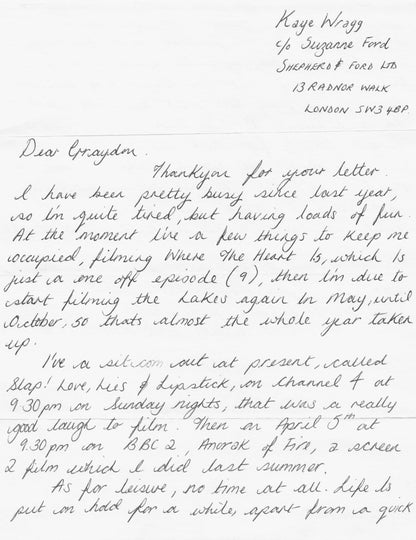 Kaye Wragg
c/o Suzanne Ford
SHEPHERD & FORD LTD
13 RADNOR WALK
LONDON SW3 4BP.
Dear Graydon.
Thankyou for your letter.
I have been pretty busy since last year,
so I'm quite tired, but having loads of fun.
At the moment I've a few things to keep me
occupied, filming Where The Heart Is, which is
just a one off episode (9), then I'm due to
start filming the Lakes again in May, until
October, so thats almost the whole year taken
up.
I've a sit.com out at present, called
Slap! Love, Lies & Lipstick, on Channel 4 at
9.30pm on Sunday nights, that was a really
good laugh to film. Then on April 5th at
9.30pm on BBC2, Anorak of Fire, a screen
2 film which I did last summer.
As for leisure, no time at all. Life is
put on hold for a while, apart from a quick